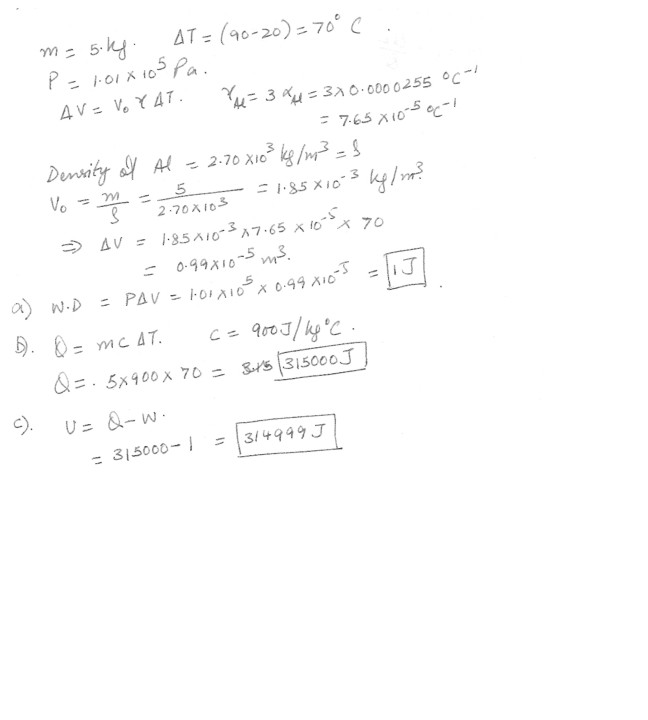 m = 5 kg. ΔT = (90-20) = 70° C.
P = 1.01 × 10⁵ Pa.
ΔV = V₀ γ ΔT. γ_Al = 3 α_Al = 3 × 0.0000255 °C⁻¹
= 7.65 × 10⁻⁵ °C⁻¹
Density of Al = 2.70 × 10³ kg/m³ = ρ
V₀ = m/ρ = 5/(2.70 × 10³) = 1.85 × 10⁻³ kg/m³.
⇒ ΔV = 1.85 × 10⁻³ × 7.65 × 10⁻⁵ × 70
= 0.99 × 10⁻⁵ m³.
a) W.D = PΔV = 1.01 × 10⁵ × 0.99 × 10⁻⁵ = 1 J.
b). Q = mcΔT. C = 900 J/kg°C.
Q = . 5 × 900 × 70 = 315000 J
c). U = Q - W.
= 315000 - 1 = 314999 J